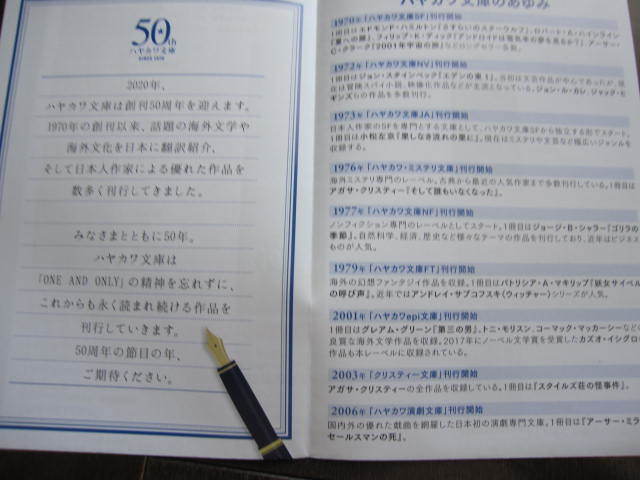 50th
ハヤカワ文庫
SINCE 1970
2020年、
ハヤカワ文庫は創刊50周年を迎えます。
1970年の創刊以来、話題の海外文学や
海外文化を日本に翻訳紹介、
そして日本人作家による優れた作品を
数多く刊行してきました。
みなさまとともに50年。
ハヤカワ文庫は
「ONE AND ONLY」の精神を忘れずに、
これからも永く読まれ続ける作品を
刊行していきます。
50周年の節目の年、
ご期待ください。
ハヤカワ文庫のあゆみ
1970年「ハヤカワ文庫SF」刊行開始
1冊目はエドモンド・ハミルトン『さすらいのスターウルフ』。ロバート・A・ハインライン
『夏への扉』、フィリップ・K・ディック『アンドロイドは電気羊の夢を見るか?』、アーサー・
C・クラーク『2001年宇宙の旅』などロングセラー多数。
1972年「ハヤカワ文庫NV」刊行開始
1冊目はジョン・スタインベック『エデンの東 1』。当初は文芸作品が中心であったが、現
在は冒険スパイ小説、映像化作品などが主流となっている。ジョン・ル・カレ、ジャック・ヒ
ギンズらの作品を多数刊行。
1973年「ハヤカワ文庫JA」刊行開始
日本人作家のSFを専門とする文庫として、ハヤカワ文庫SFから独立する形でスタート。
1冊目は小松左京『果しなき流れの果に』。現在はミステリや文芸など幅広いジャンルを
収録する。
1976年「ハヤカワ・ミステリ文庫」刊行開始
海外ミステリ専門のレーベル。古典から最近の人気作家まで多数刊行している。1冊目は
アガサ・クリスティー『そして誰もいなくなった』。
1977年「ハヤカワ文庫NF」刊行開始
ノンフィクション専門のレーベルとしてスタート。1冊目はジョージ・B・シャラー『ゴリラの
季節』。自然科学、経済、歴史など様々なテーマの作品を刊行しており、近年はビジネス
ものが人気。
1979年「ハヤカワ文庫FT」刊行開始
海外の幻想ファンタジイ作品を収録。1冊目はパトリシア・A・マキリップ『妖女サイベル
の呼び声』。近年ではアンドレイ・サプコフスキ〈ウィッチャー〉シリーズが人気。
2001年「ハヤカワepi文庫」刊行開始
1冊目はグレアム・グリーン『第三の男』。トニ・モリスン、コーマック・マッカーシーなどの
良質な海外文学作品を収録。2017年にノーベル文学賞を受賞したカズオ・イシグロの
作品も本レーベルに収録されている。
2003年「クリスティー文庫」刊行開始
アガサ・クリスティーの全作品を収録している。1冊目は『スタイルズ荘の怪事件』。
2006年「ハヤカワ演劇文庫」刊行開始
国内外の優れた戯曲を網羅した日本初の演劇専門文庫。1冊目は『アーサー・ミラ
セールスマンの死』。